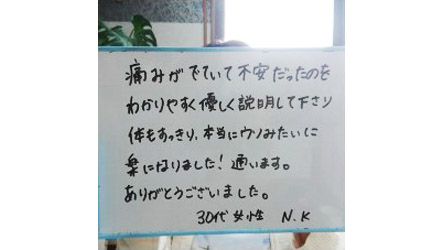 痛みがでていて不安だったのを
わかりやすく優しく説明して下さり
体もすっきり、本当にウソみたいに
楽になりました!通います。
ありがとうございました。
30代女性 N.K